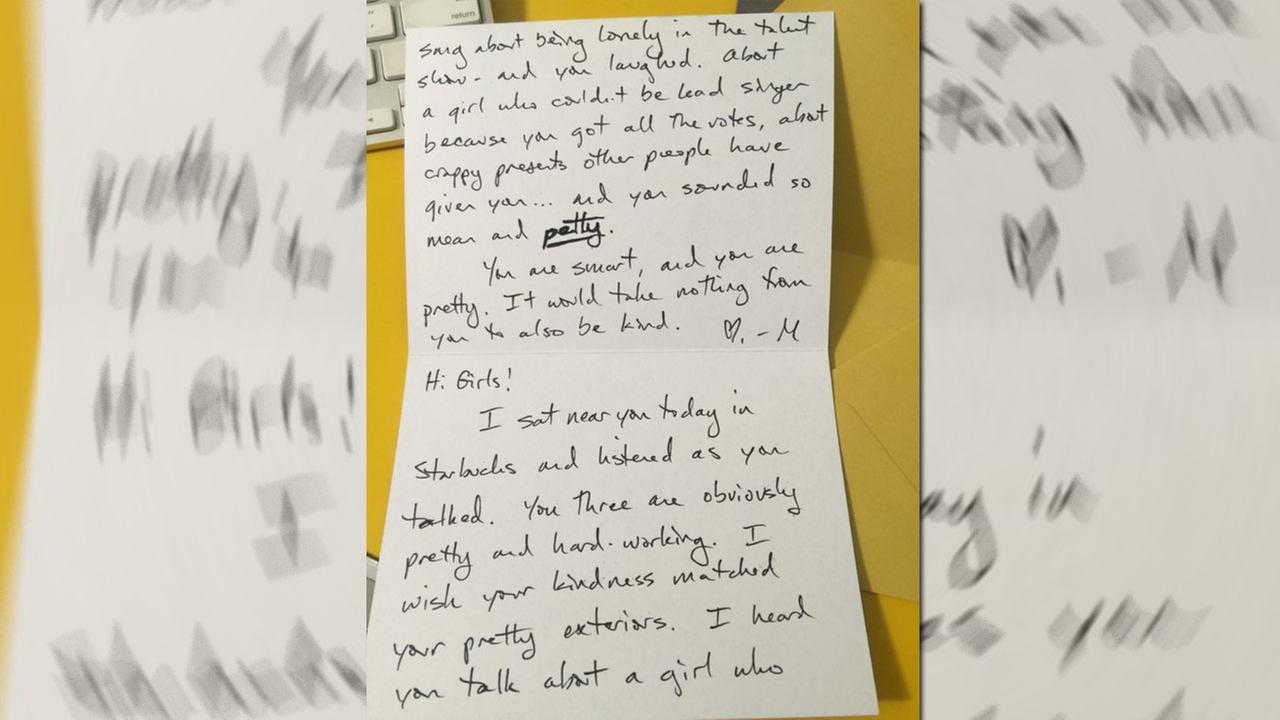 return
sang about being lonely in the talent
show - and you laughed. About
a girl who couldn't be lead singer
because you got all the votes, about
crappy presents other people have
given you... and you sounded so
mean and petty.
You are smart, and you are
pretty. It would take nothing from
you to also be kind. ♡, - M
Hi Girls!
I sat near you today in
Starbucks and listened as you
talked. You three are obviously
pretty and hard-working. I
wish your kindness matched
your pretty exteriors. I heard
you talk about a girl who